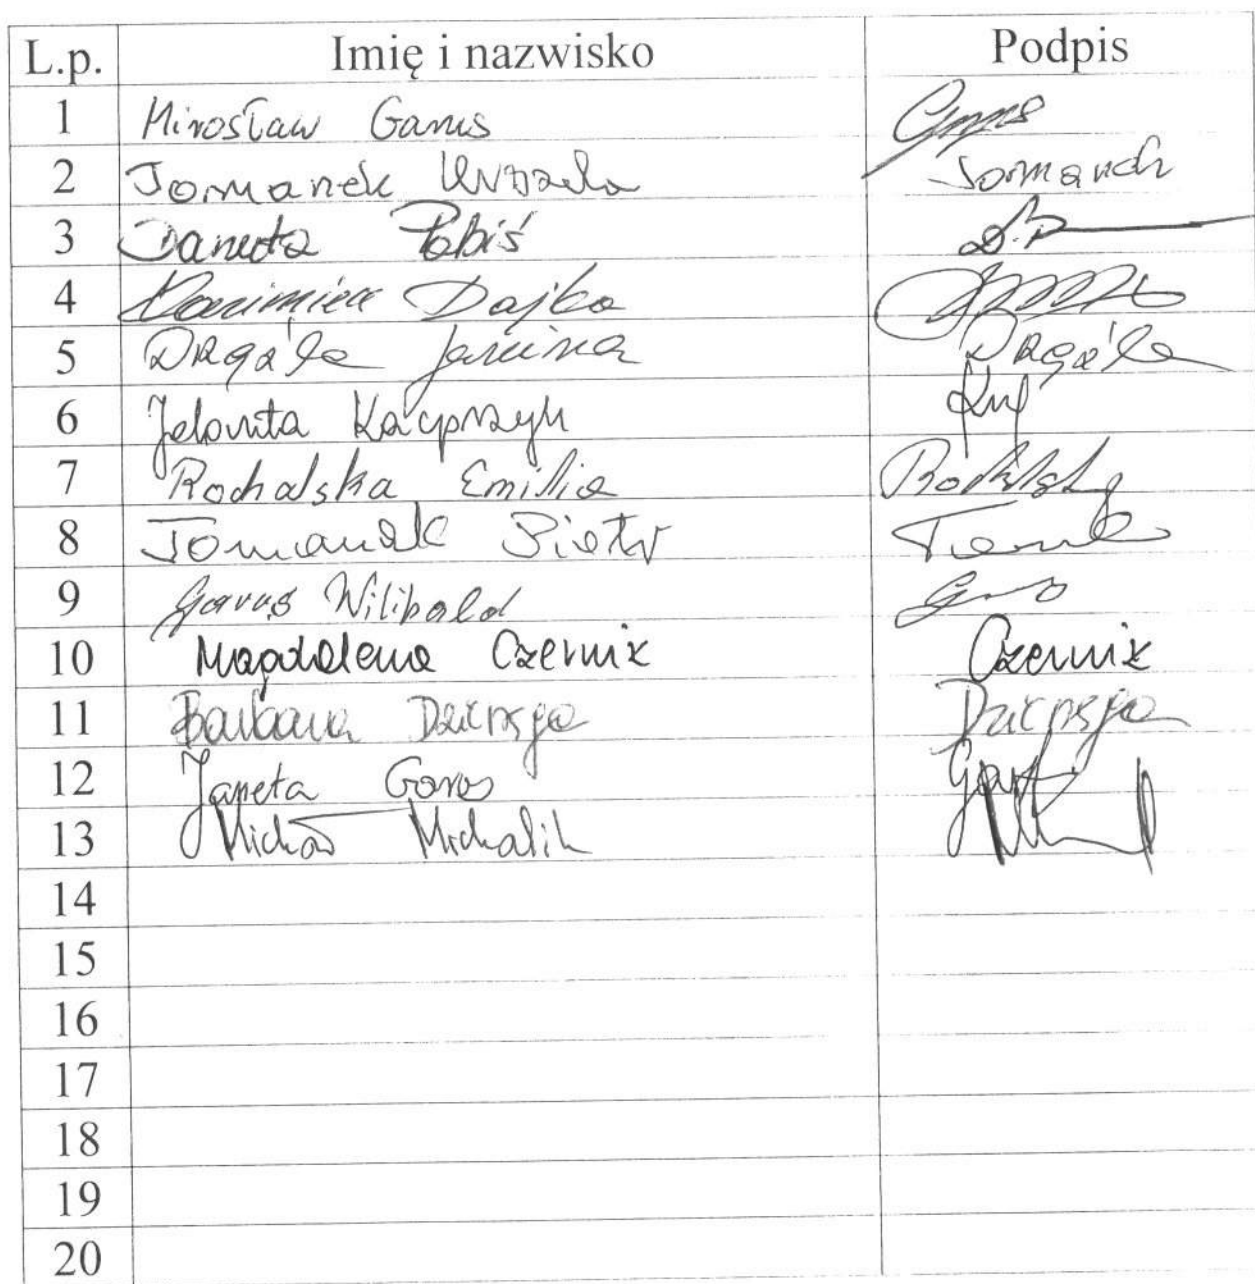 L.p. Imię i nazwisko Podpis
1 Mirosław Garus
2 Tomanek Urszula Tomanek
3 Danuta Pabiś D.P
4 Kazimierz Dajka
5 Drgála Janina Drgála
6 Jolanta Kacprzyk
7 Rochalska Emilia
8 Tomanek Piotr
9 Garus Wilibald
10 Magdalena Czernik Czernik
11 Barbara
12 Żaneta Garus
13 Michał Michalik
14
15
16
17
18
19
20